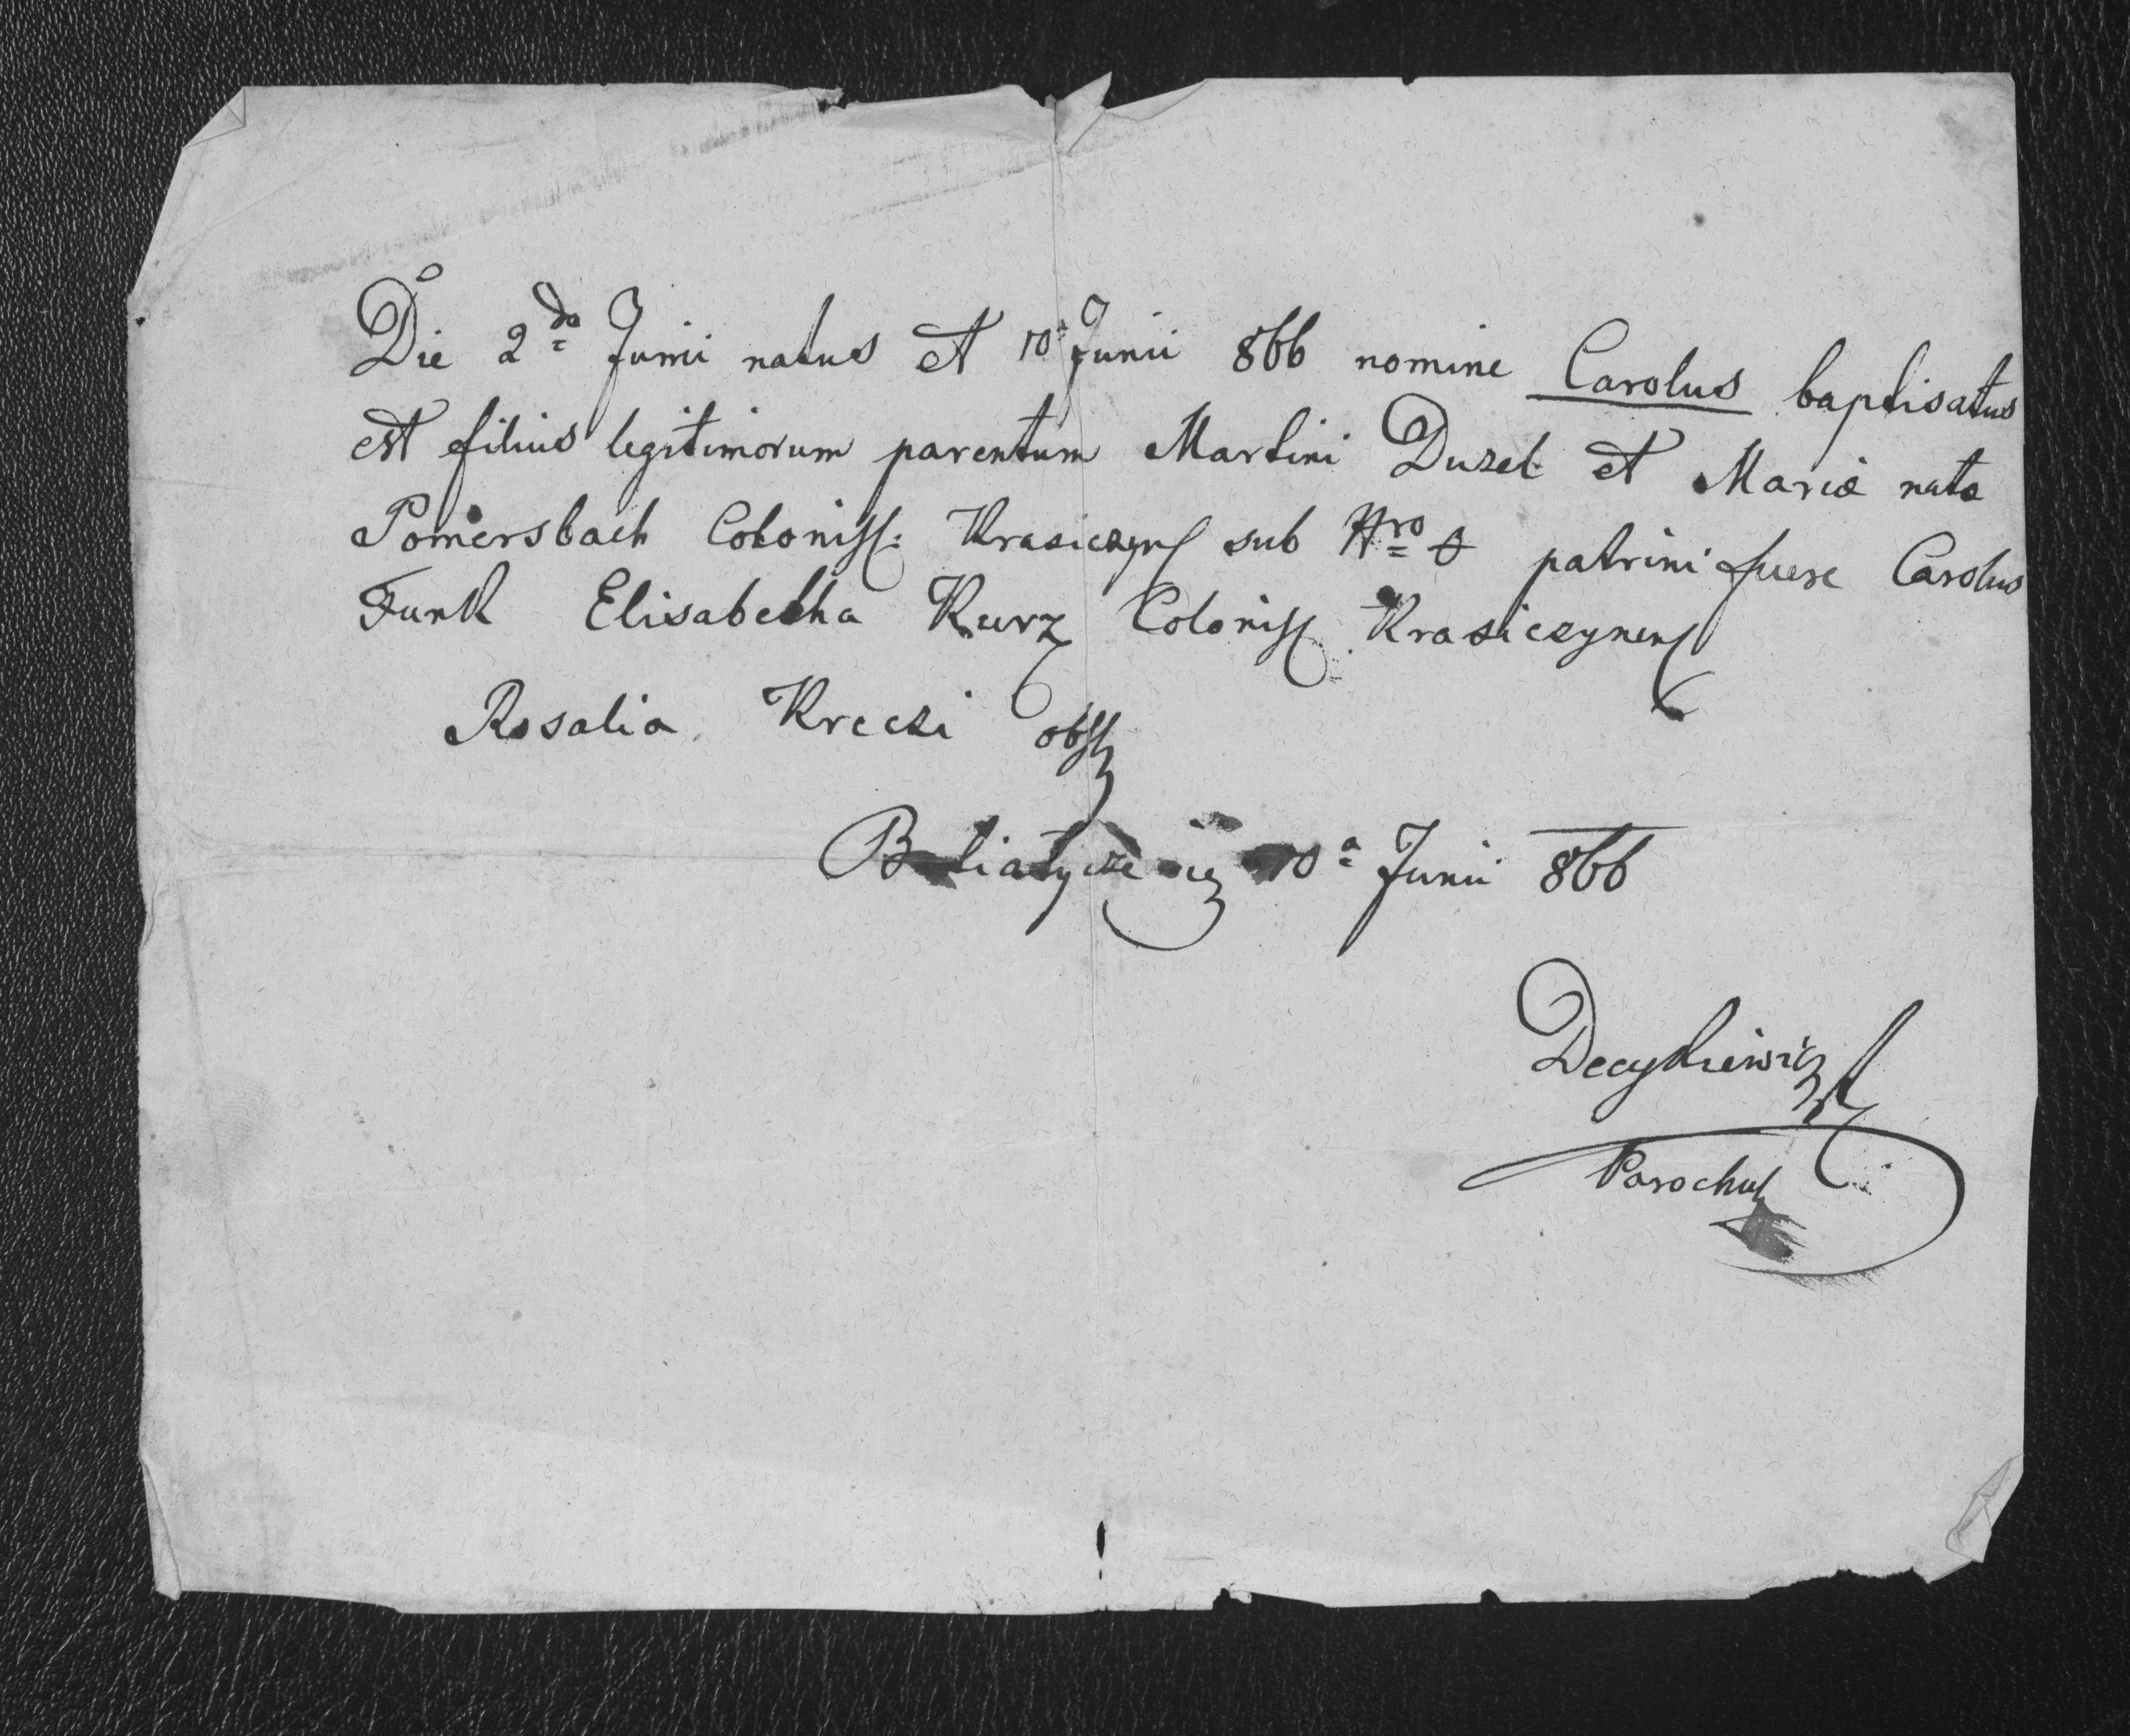 Die 2do Junii natus et 10a Junii 866 nomine Carolus baptisatus
est filius legitimorum parentum Martini Duzel et Mariæ nata
Pomersbach Coloniss: Krasiczyns sub Nro patrini fuere Carolus
Funk Elisabetha Kurz Coloniss Krasiczynens
Rosalia Kreczi obst
10a Junii 866
Decykiewicz
Parochus